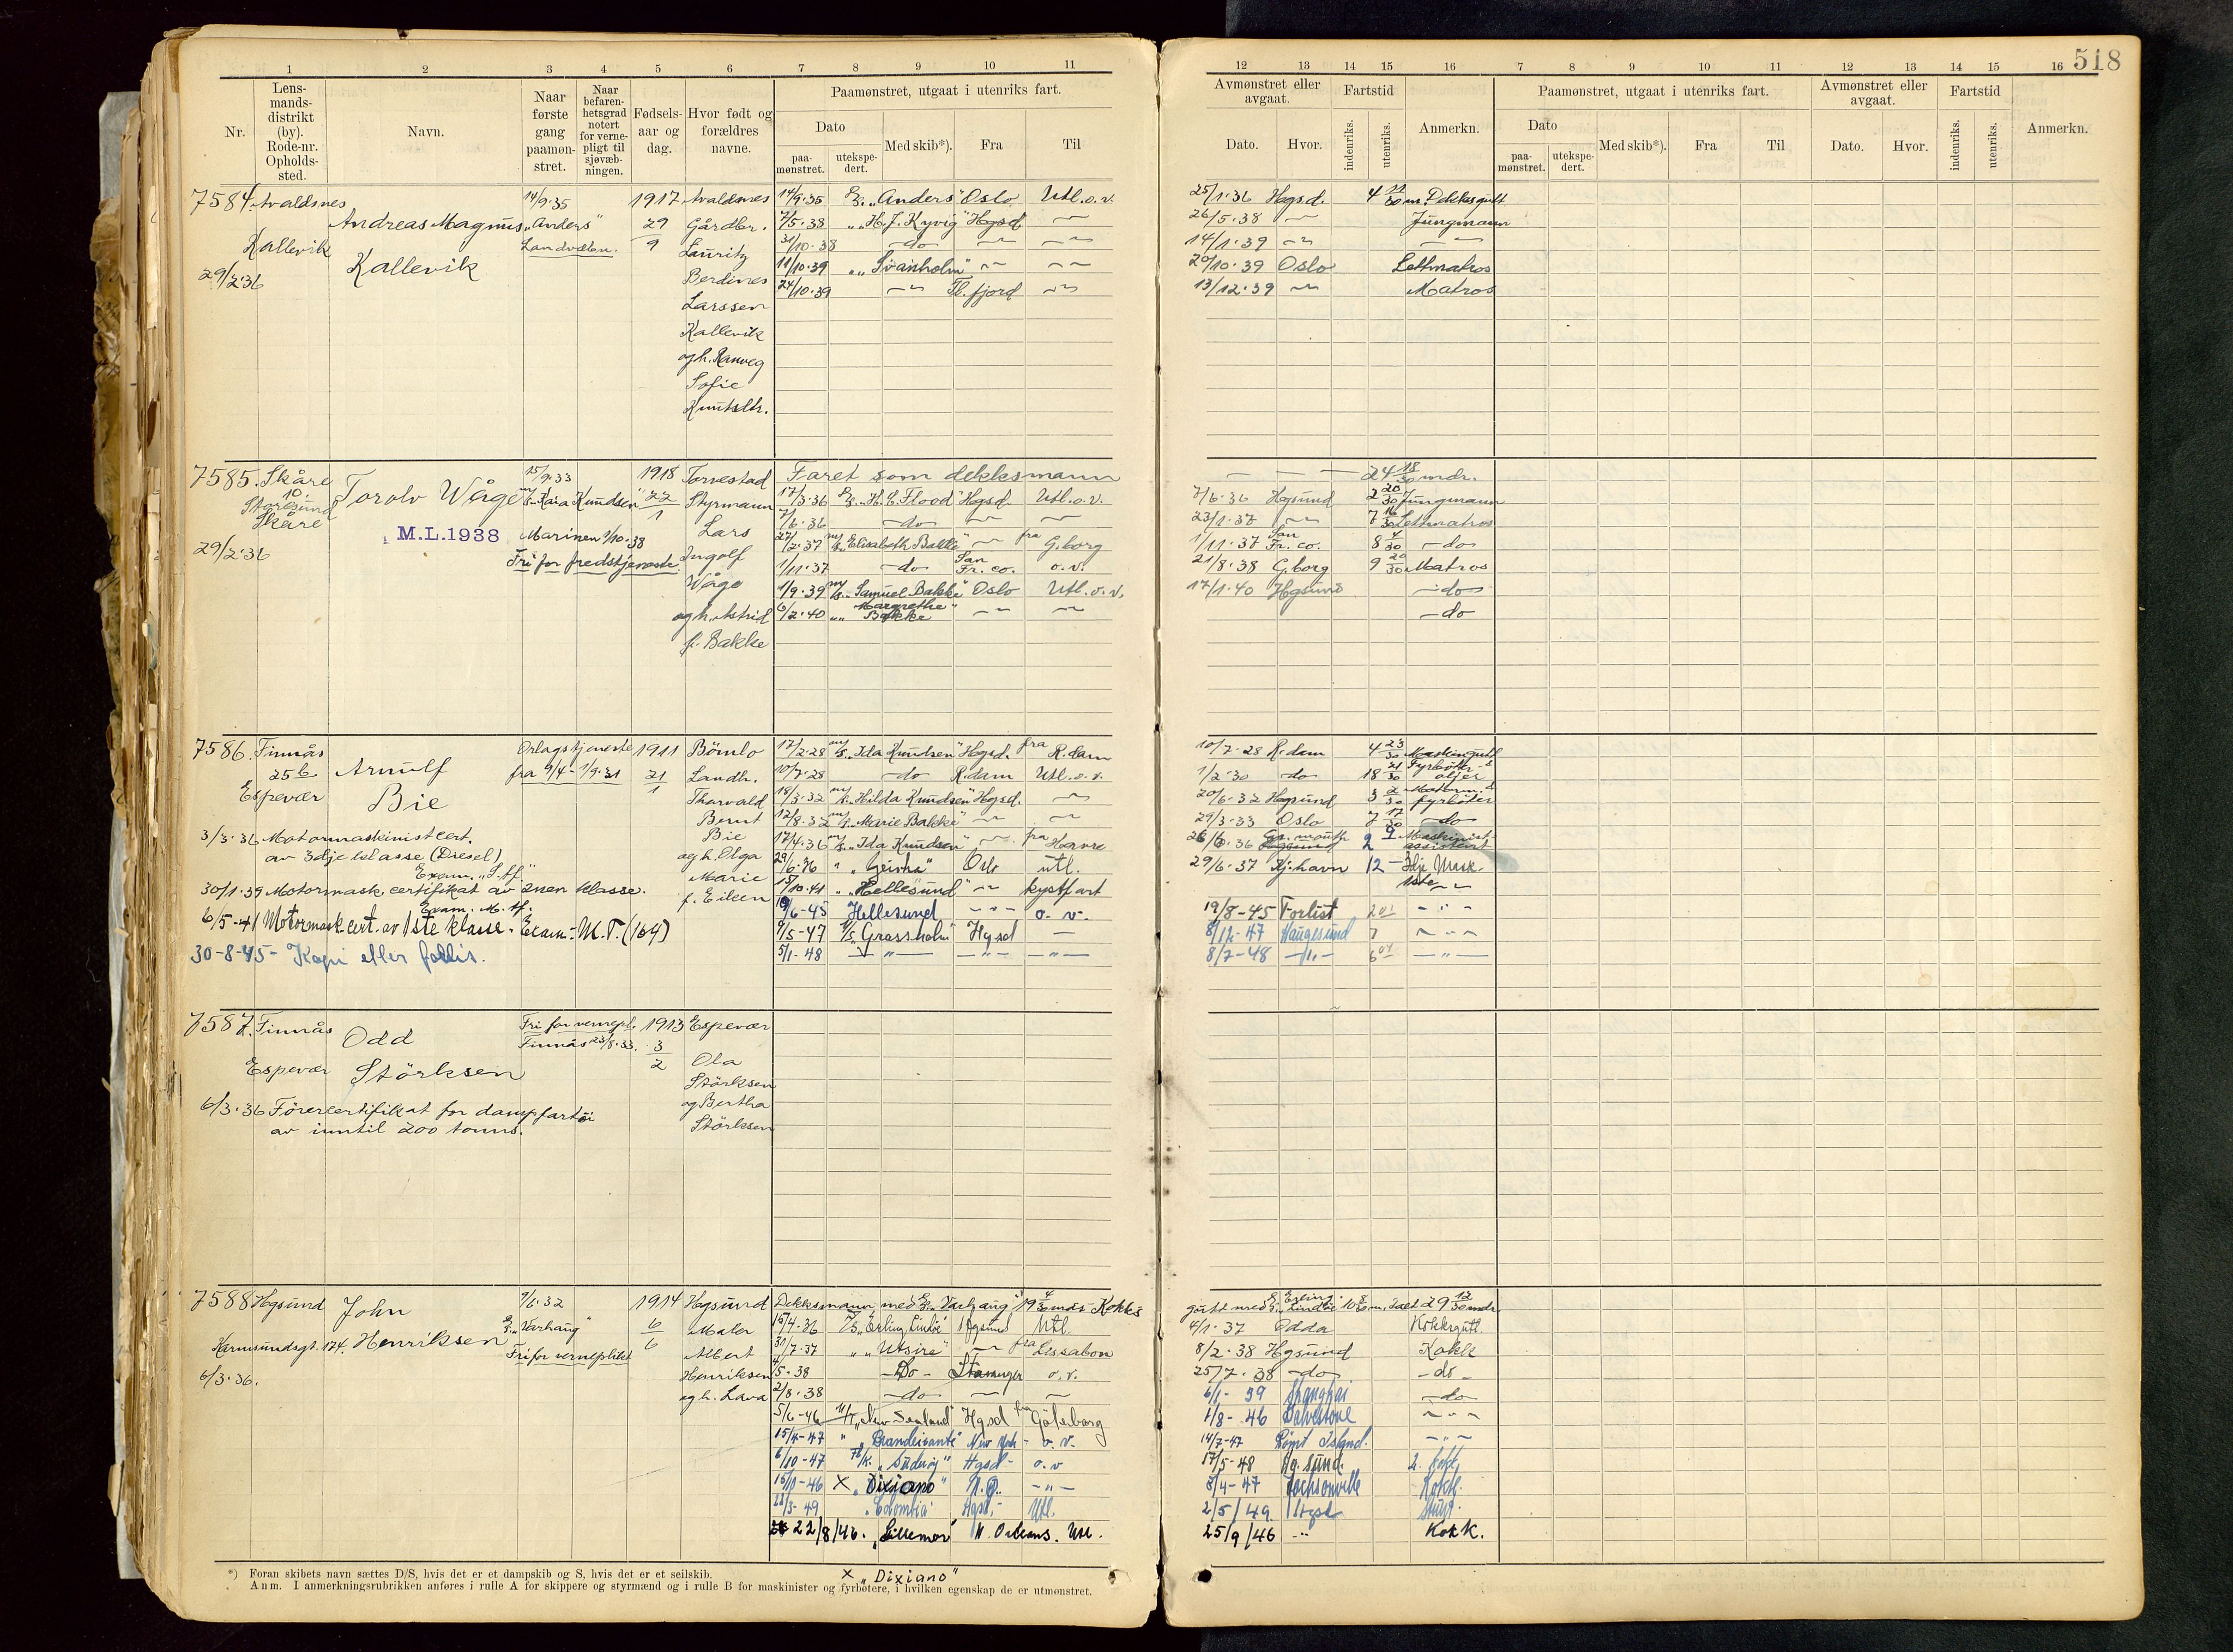 518
1 2 3 4 5 6 7 8 9 10 11 12 13 14 15 16 7 8 9 10 11 12 13 14 15 16
Nr.
Lens-
mands-
distrikt
(by).
Rode-nr.
Opholds-
sted.
Navn.
Naar
første
gang
paamøn-
stret.
Naar
befaren-
hetsgrad
notert
for verne-
pligt til
sjøvæb-
ningen.
Fødsels-
aar og
dag.
Hvor født og
forældres
navne.
Paamønstret, utgaat i utenriks fart.
Dato
paa-
mønstret.
utekspe-
dert.
Med skib*).
Fra
Til
Avmønstret eller
avgaat.
Dato.
Hvor.
Fartstid
indenriks.
utenriks.
Anmerkn.
Paamønstret, utgaat i utenriks fart.
Dato
paa-
mønstret.
utekspe-
dert.
Med skib*).
Fra
Til
Avmønstret eller
avgaat.
Dato.
Hvor.
Fartstid
indenriks.
utenriks.
Anmerkn.
7584. Avaldsnes
Kallevik
29/2·36
Andreas Magnus
Kallevik
14/9·35
"Anders"
Landvæbn.
1917
29
9
Avaldsnes
Gårdbr.
Lauritz
Berdines
Larssen
Kallevik
og h. Ranveg
Sofie
Knutsdtr.
14/9·35 "Anders" Oslo Utl.o.v. 25/1·36 Hgsd. 4 Dekksgutt
7/5·38 " "H. J. Kyvig" Hgsd 26/5·38 Jungmann
31/10·38 —do— 14/1·39
11/10·39 " "Svanholm" 20/10·39 Oslo Lettmatros
24/10·39 Fl.fjord 13/12·39 Matros
7585. Skåre
10.
Storesund
Skåre
29/2·36
Torolv Våge
M.L.1938
15/9·33
"Kaia Knudsen"
Marinen 1/10·38
Fri for fredstjeneste.
1918
22
1
Torvestad
Styrmann
Lars
Ingolf
Våge
og h. Astrid
f. Bakke
Faret som dekksmann — — — 24 18/30 mdr.
17/3·36 "H. C. Flood" Hgsd. Utl.o.v. 7/6·36 Hgsund 2 20/30 Jungmann
7/6·36 —do— 23/1·37 7 16/30 Lettmatros
27/2·37 "Elisabeth Bakke" fra G.borg 1/11·37 San Fr. co. 8 4/30 —do—
1/11·37 —do— San Fr. co. o.v. 21/8·38 G.borg 9 20/30 Matros
1/9·39 "Samuel Bakke" Oslo Utl.o.v. 17/1·40 Hgsund —do—
6/2·40 "Margrethe Bakke" —do—
7586. Finnås
256
Espevær
Arnulf
Bie
Orlogstjeneste
fra 9/4 - 1/9·31
1911
21
1
Bömlo
Landh.
Thorvald
Bernt
Bie
og h. Olga
Marie
f. Eiken
3/3·36 Motormaskinistcert.
av 3dje klasse (Diesel)
30/1·39 Motormask certifikat av 2nen klasse.
Exam. M. tf.
6/5-41 Motormask cert. av 1ste klasse. Exam: M.T. (164)
30-8-45- Kopi efter forlis.
17/2·28 "Ida Knudsen" Hgsd. fra R.dam 10/7-28 R.dam 4 23/30 Maskingutt
10/7·28 —do— R.dam Utl.o.v. 1/2·30 —do— 18 21/30 Fyrböter & oljer
18/3·32 "Hilda Knudsen" Hgsd. 20/6·32 Hgsund 3 2/30 Motorm. & fyrböter
12/8·32 "Marie Bakke" 29/3-33 Oslo 7 17/30 —do—
17/4·36 "Ida Knudsen" fra Havre 26/6·36 2 Maskinist assistent
29/6·36 " "Geisha" Oslo utl. 29/6·37 Kj.havn 12 — 3dje Mask.
15/10·41 " "Hellesund" kystfart 1ste
6-45 Hellesund o. v. 19/8-45 Forlist
9/5-47 "Grassholm" Hgsd 8/12-47 Haugesund 7
5/1-48 8/7-48
7587. Finnås
Espevær
Odd
Störksen
Fri for vernepl.
Finnås 23/8·33.
1913
3
2
Espevær
Ola
Störksen
og Bertha
Störksen
6/3·36 Förercertifikat for dampfartöi
av inntil 200 tonns.
7588 Hgsund
Karmsundsgt. 174.
6/3·36.
John
Henriksen
7/6·32
"Varhaug"
Fri for verneplikt
1914
6
6
Hgsund
Maler
Albert
Henriksen
og h. Lava
Dekksmann med "Varhaug" 19 4/30 mdr. Kokks
gutt med "Erling Lindöe" 10 8/30 m, Ialt 29 12/30 mdr.
15/4-36 "Erling Lindöe" Hgsund Utl. 4/1·37 Odda Kokksgutt.
31/7·37 " "Utsire" fra Lissabon 8/2·38 Hgsund Kokk
4/5-38 —Do— Stavanger o.v. 25/7·38 —do— —do—
2/8·38 —do— 6/1-39 Shanghai —do—
5/6-46 "New Sealand" Hgsd fra Göteborg 1/8-46
15/4-47 " "Brandeivante" New York - o. v. 14/7-47
6/10-47 "Suderöy" Hgsd- o.v 17/5-48 Hg.sund. 2. kokk
15/11-46 X "Dixiano" N.O. —"— 8/4-47 Jacksonville Kokk.
23/3-49 "Colombia" Hgsd,- Utl. 2/5/49. Hgsd Stuert.
22/8/46. "Lillemor" N. Orleans. Utl. 25/9/46 —"— Kokk.
*) Foran skibets navn sættes D/S, hvis det er et dampskib og S, hvis det er et seilskib.
X "Dixiano"
Anm. I anmerkningsrubrikken anføres i rulle A for skippere og styrmænd og i rulle B for maskinister og fyrbøtere, i hvilken egenskap de er utmønstret.